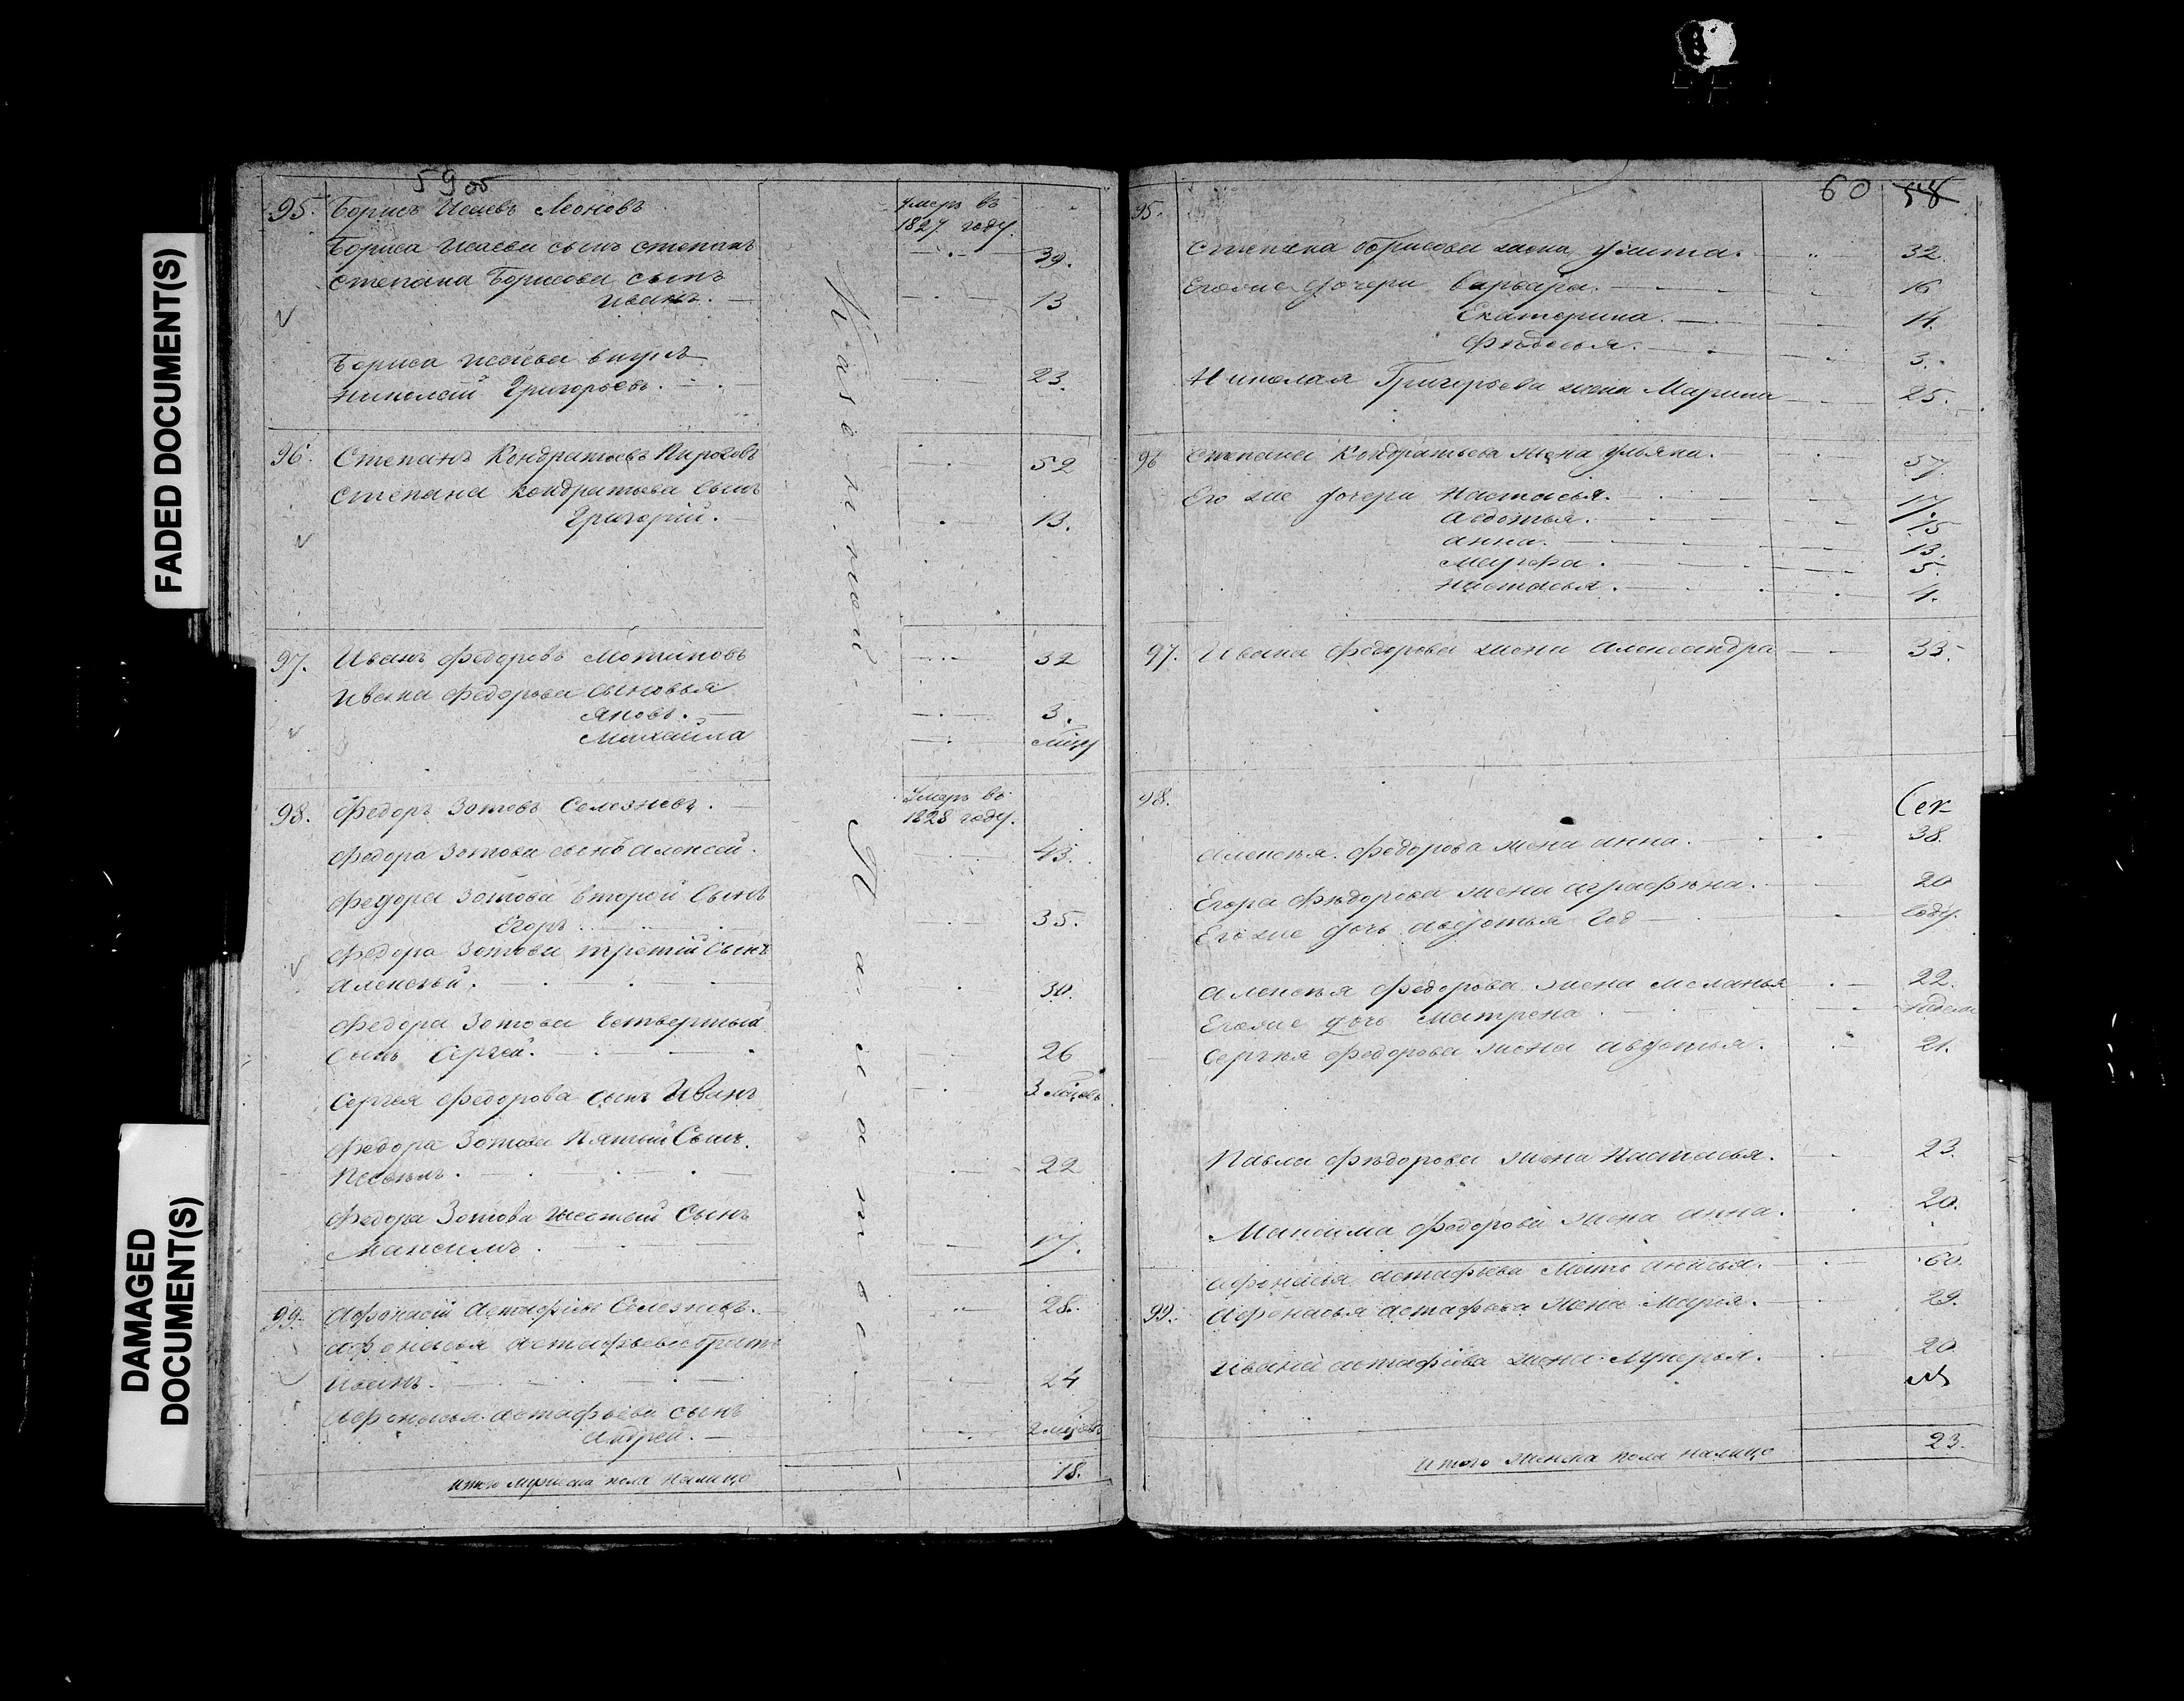 FADED DOCUMENT(S)
DAMAGED
DOCUMENT(S)
59 об
95. Борисъ Исаевъ Леоновъ
умеръ въ
1827 году.
Бориса Исаева сынъ степанъ 39.
степана Борисова сынъ
иванъ. 13
Бориса Исаева внукъ
николай Григорьевъ. 23.
96. Степанъ Кондратьевъ Пироговъ 52
степана кондратьева сынъ
Григорий. 13.
97. Иванъ федоровъ Мотиновъ 32
Ивана федорова сыновья
яковъ. 3.
Михайла
98. федоръ Зотовъ Селезневъ.
умеръ въ
1828 году.
федора Зотова сынъ алексей. 43.
федора Зотова второй Сынъ
Егоръ. 35.
федора Зотова третий Сынъ
алексъй. 30.
федора Зотова четвертый
сынъ Сергей. 26
Сергъя федорова сынъ Иванъ 3
федора Зотова Пятый Сынъ
22
федора Зотова шестый Сынъ
Максимъ. 17.
99. афонасий астафьевъ Селезневъ. 28.
афонасья астафьева братъ
иванъ. 24
афонасья астафьева сынъ
андрей. 2
итого мужеска пола налицо 18.
60 58
95.
степана борисова жена улита. 32.
Егоже дочери варвара. 16
Екатерина. 14.
федосья. 3.
Николая Григорьева жена Марина 25.
96 степана Кондратьева жена ульяна. 57.
Его же дочери настасья. 17.
авдотья. 15
анна. 13.
Марфа. 5.
настасья. 4.
97. Ивана федорова жена александра 33.
98.
алексъя федорова жена анна. 38.
Егора фъдорова жена аграфъна. 20
Егоже дочь авдотья год году.
алексъя федорова жена меланья 22.
Егоже дочь матрена.
Сергъя федорова жена авдотья. 21.
Павла фъдорова жена настасья. 23.
Максима федорова жена анна. 20.
афонасья астафьева мать анисья. 60.
99. афонасья астафьева жена марья. 29.
ивана астафьева жена лукерья. 20
итого женска пола налицо 23.